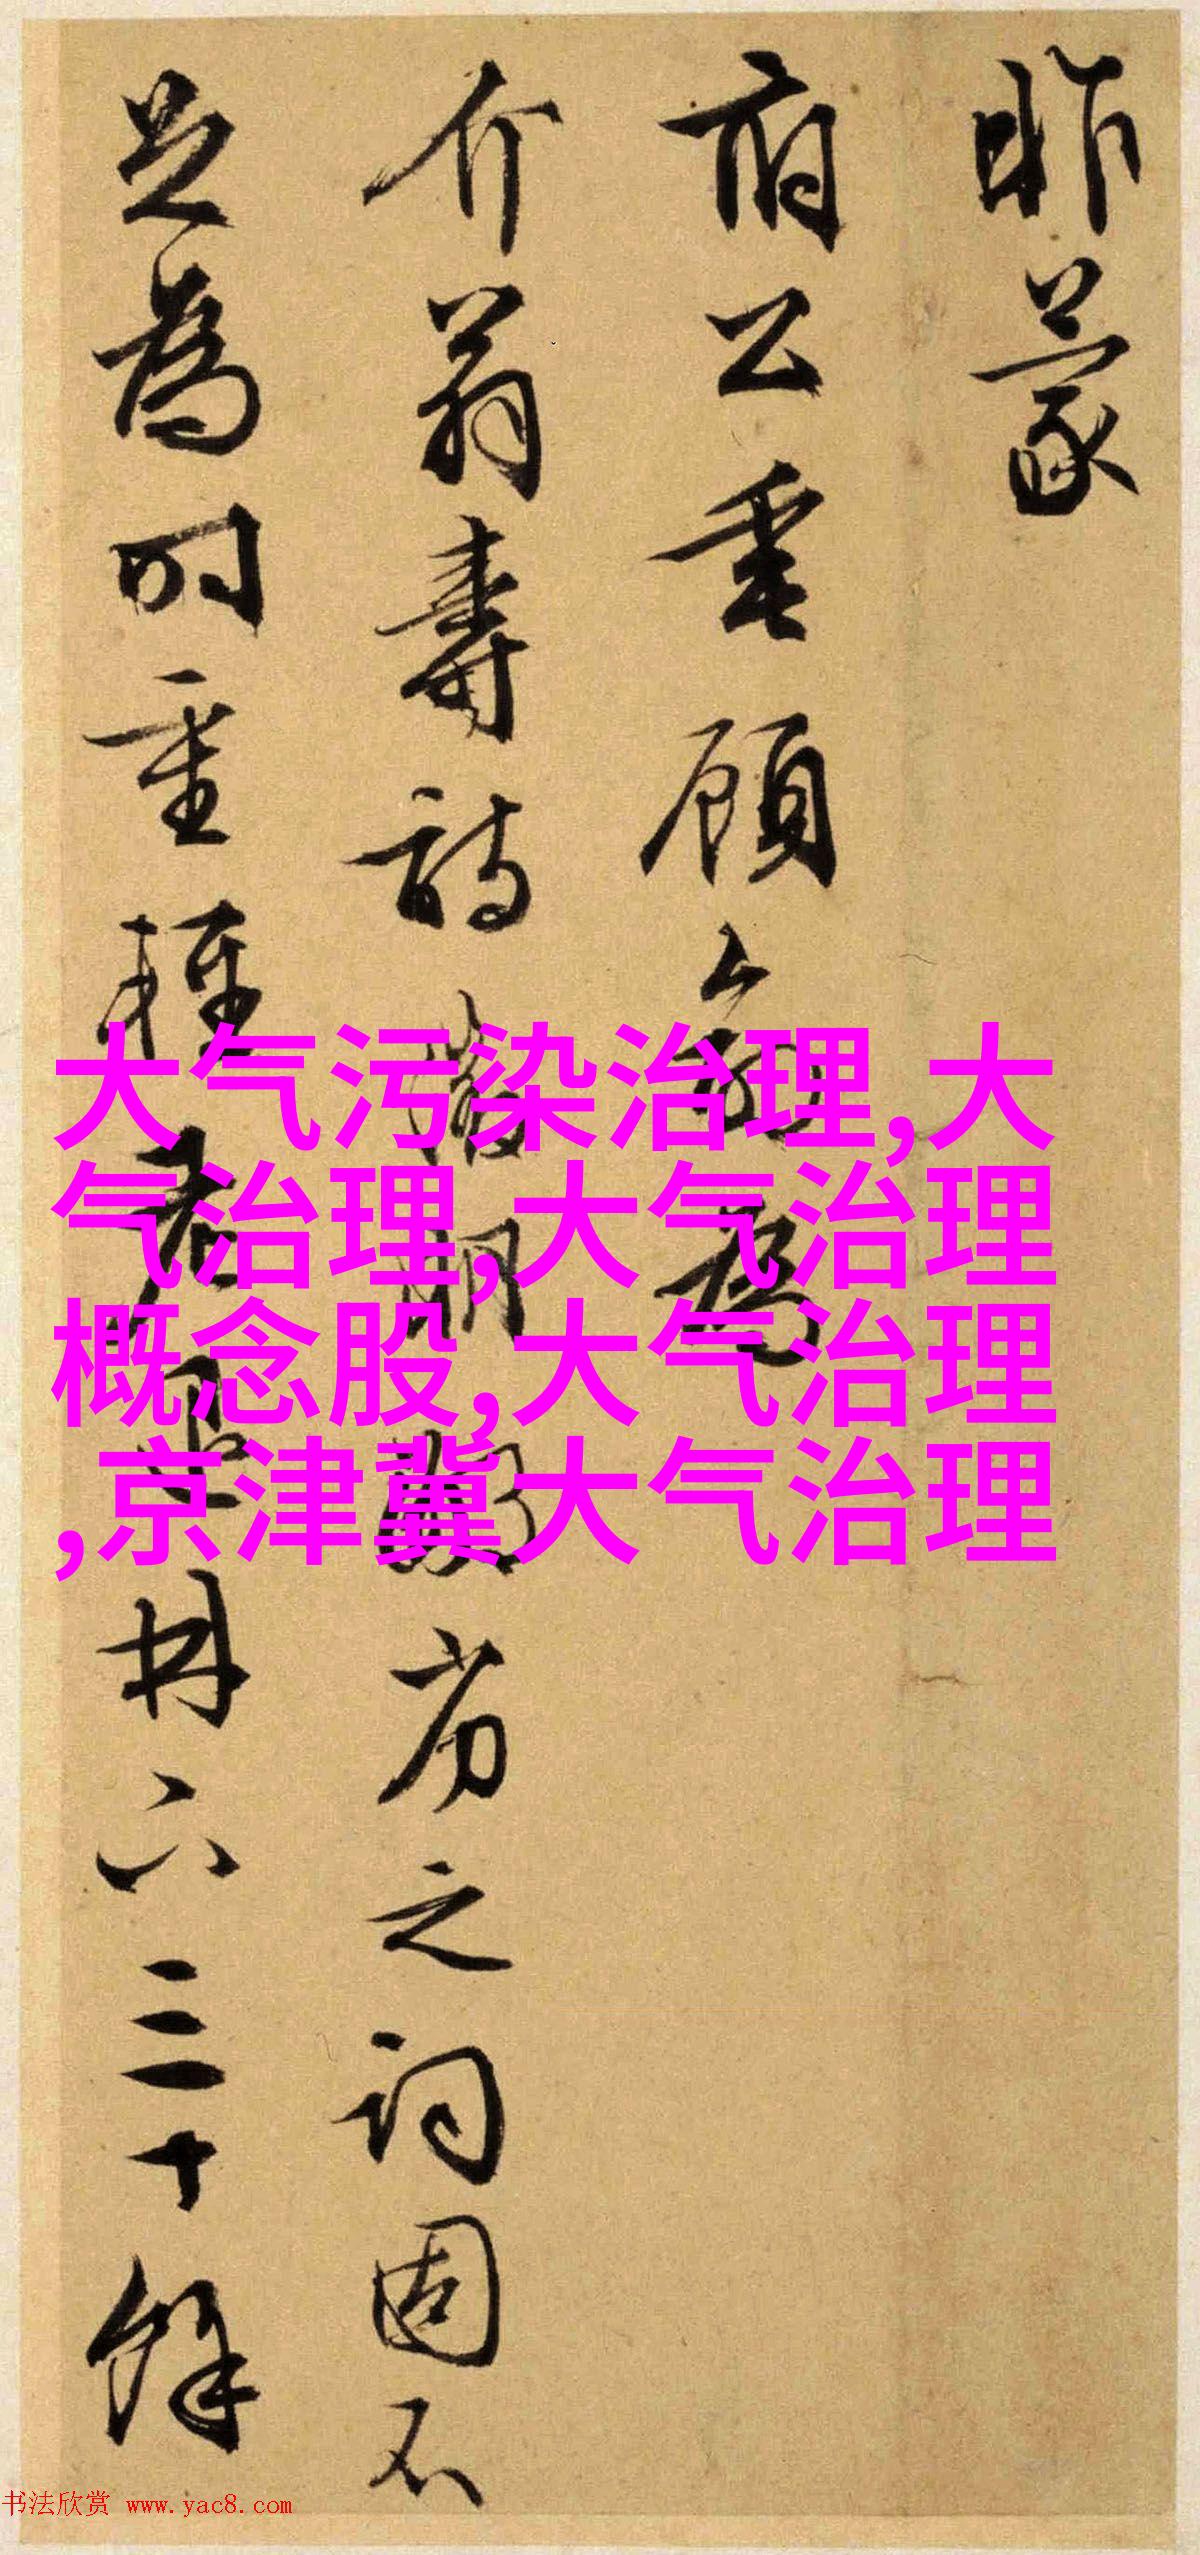 昨蒙
府公垂顧為
介翁壽詩鄙劣之詞固不
足為時重輕冊三十餘
大气污染治理,大
气治理,大气治理
概念股,大气治理
,京津冀大气治理
书法欣赏 www.yac8.com